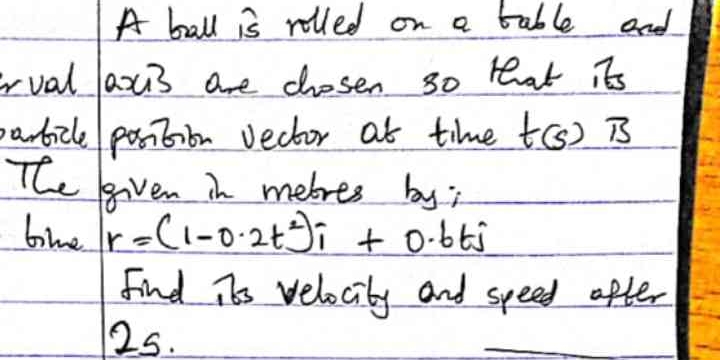 A ball is rolled on a table and
rval axis are chosen so that its
particle position vector at time t(s) is
The given in metres by;
time r = (1-0.2t²)i + 0.6tj
Find its velocity and speed after
2s.